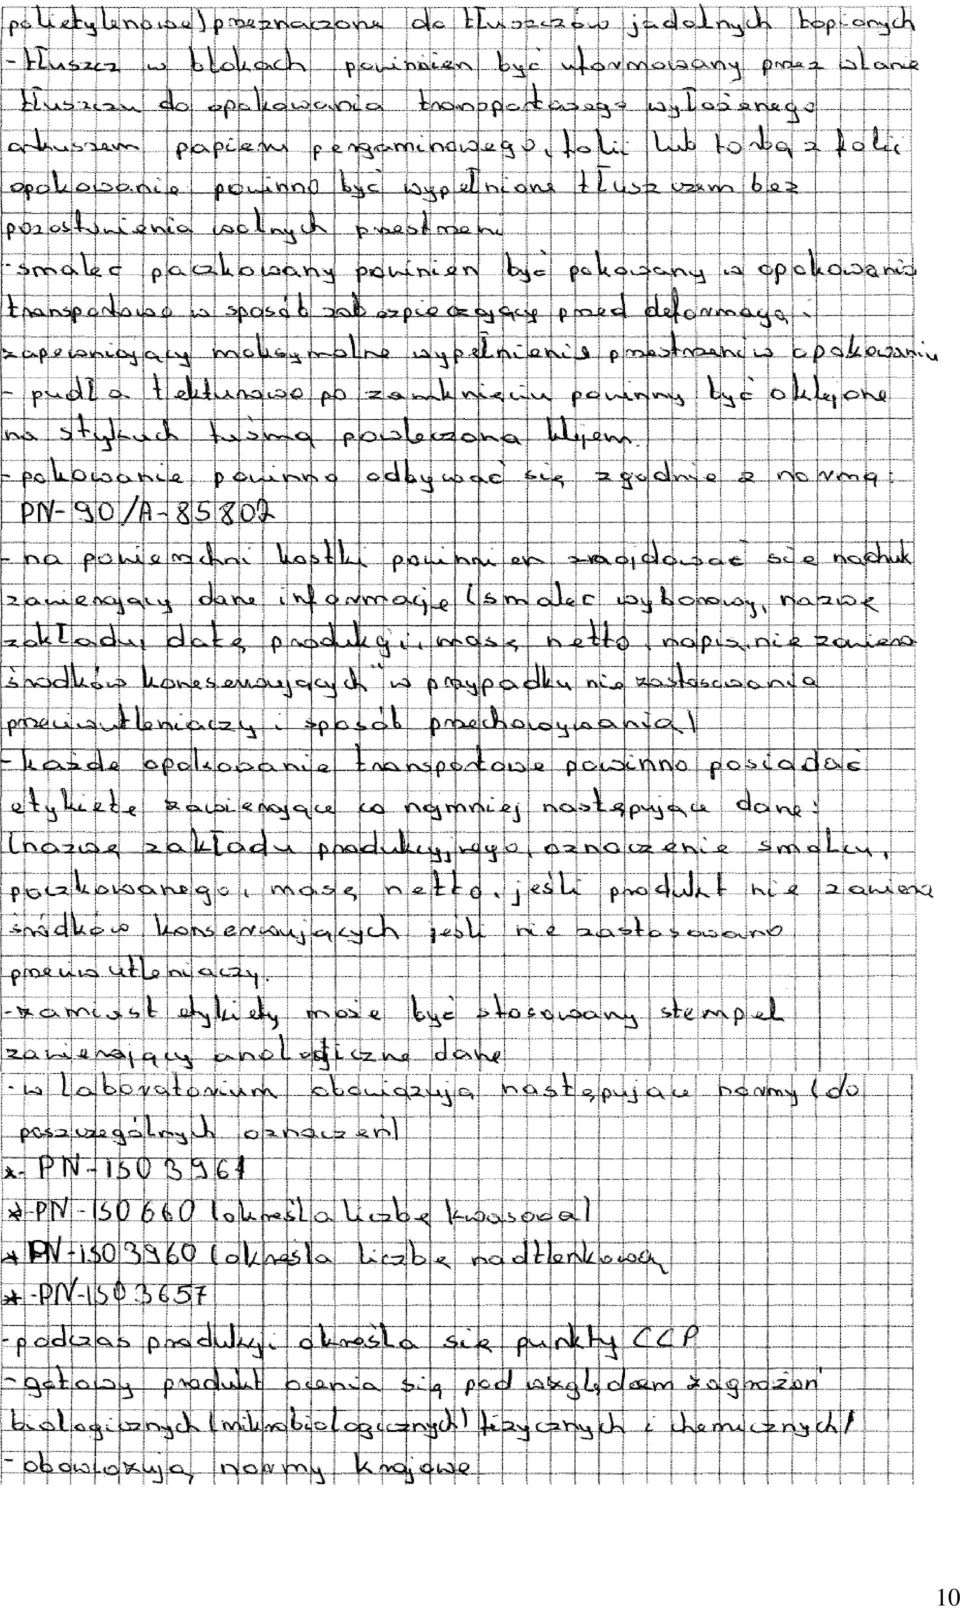 polietylenowe) przeznaczone do tłuszczów jadalnych topionych
- tłuszcz w blokach powinnien być uformowany przez wlanie
tłuszczu do opakowania transportowego wyłożonego
arkuszem papieru pergaminowego, folii lub torbą z folii
opakowanie powinno być wypełnione tłuszczem bez
pozostwienia wolnych przestrzeni
- smalec paczkowany powinien być pakowany w opakowania
transportowe w sposób zabezpieczający przed deformacją i
zapewniający maksymalne wypełnienie przestrzeni w opakowaniu
- pudła tekturowe po zamknięciu powinny być oklejone
na stykach taśmą powleczoną klejem.
- pakowanie powinno odbywać się zgodnie z normą:
PN-90/A-85802
- na powierzchni kostki powinnien znajdować się nadruk
zawierający dane informacje (smalec wyborowy, nazwę
zakładu, datę produkcji, masę netto, napis „nie zawiera
środków konserwujących" w przypadku nie zastosowania
przeciwutleniaczy i sposób przechowywania)
- każde opakowanie transportowe powinno posiadać
etykietę zawierające co najmniej następujące dane:
(nazwę zakładu produkcyjnego, oznaczenie smalcu,
paczkowanego, masę netto, jeśli produkt nie zawiera
środków konserwujących jeśli nie zastosowano
przeciwutleniaczy.
- zamiast etykiety może być stosowany stempel
zawierający analogiczne dane
- w laboratorium obowiązują następujące normy (do
poszczególnych oznaczeń)
*- PN-ISO 3961
*-PN-ISO 660 (określa liczbę kwasową)
* PN-ISO 3960 (określa liczbę nadtlenkową
*-PN-ISO 3657
- podczas produkcji określa się punkty CCP
- gotowy produkt ocenia się pod względem zagrożeń
biologicznych (mikrobiologicznych) fizycznych i chemicznych/
- obowiązują normy krajowe
10